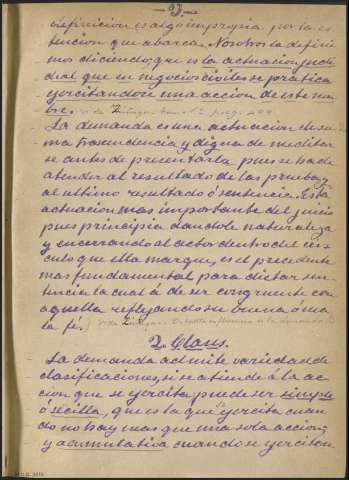 definicion es algo impropia por la es
tencion que abarca. Nosotros la defini
mos diciendo; que es la actuacion judi
cial que en negocios civiles se practica
ejercitandose una accion de este nom
bre.
La demanda es una actuacion de su
ma trascendencia y digna de meditar
se antes de presentarla pues se ha de
atender al resultado de las pruebas y
al ultimo resultado ó sentencia. Es la
actuacion mas importante del juicio
pues principia dandole naturaleza
y encerrando al actor dentro del cir
culo que ella marque, es el precedente
mas fundamental para dictar sen
tencia la cual á de ser congruente con
aquella reflejando su buena ó ma
la fé.
2. Clases.
La demanda admite variedad de
clasificaciones, si se atiende á la ac
cion que se ejercita puede ser simple
ó sencilla, que es la que se ejercita cuan
do no hay mas que una sola accion;
y acumulativa cuando se ejercitan